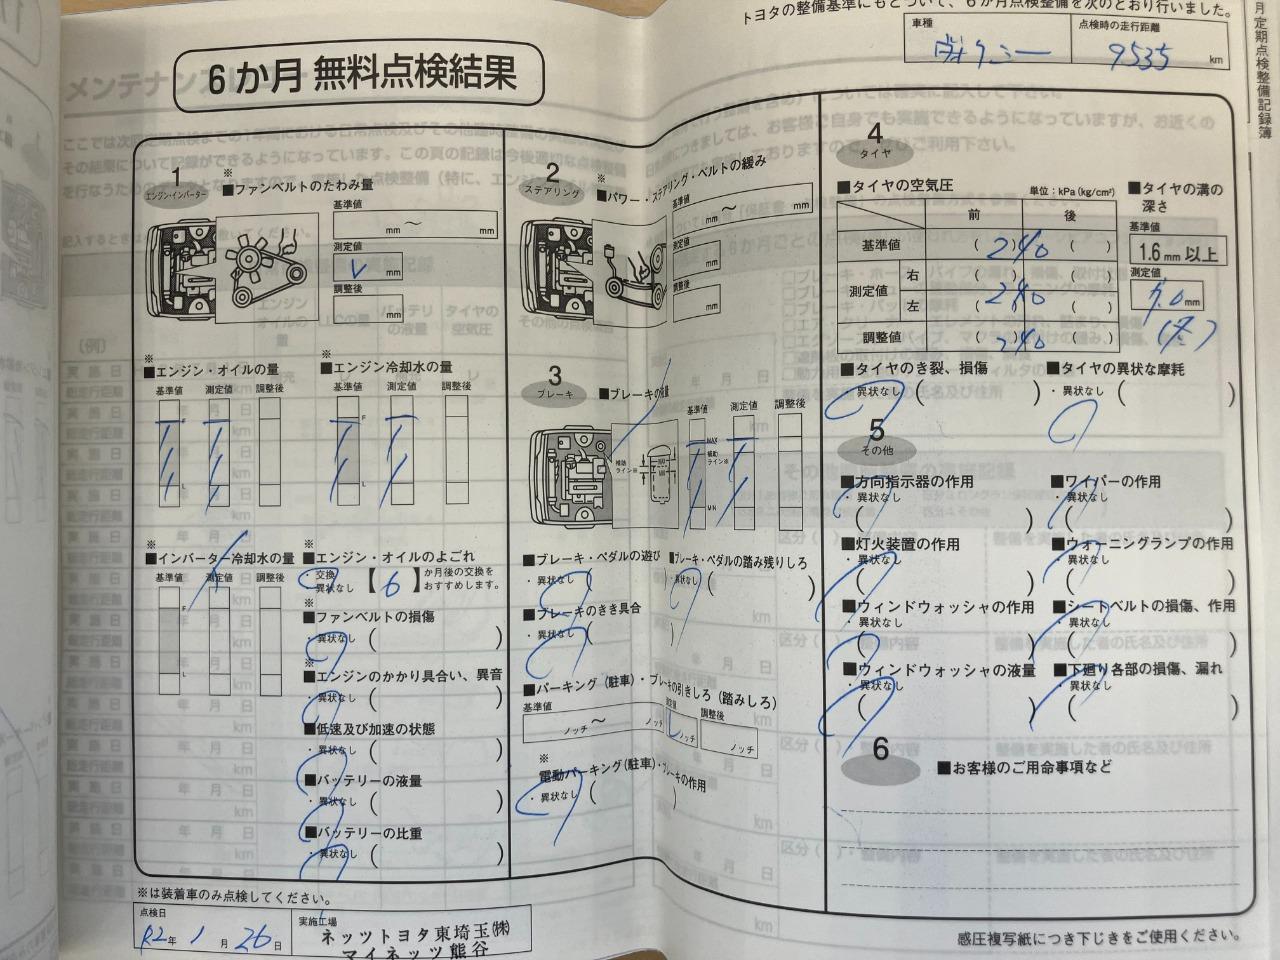 6か月 無料点検結果
トヨタの整備基準にもとづいて、6か月点検整備を次のとおり行いました。
車種
ヴォクシー
点検時の走行距離
9535 km
月定期点検整備記録簿
1
エンジン・インバーター
※
■ファンベルトのたわみ量
基準値
mm ～ mm
測定値
レ mm
調整後
mm
※
■エンジン・オイルの量
基準値 測定値 調整後
F
L
※
■エンジン冷却水の量
基準値 測定値 調整後
F
L
※
■インバーター冷却水の量
基準値 測定値 調整後
F
L
※
■エンジン・オイルのよごれ
・交換
・異状なし
【6】か月後の交換を
おすすめします。
※
■ファンベルトの損傷
・異状なし ( )
※
■エンジンのかかり具合い、異音
・異状なし ( )
■低速及び加速の状態
・異状なし ( )
■バッテリーの液量
・異状なし ( )
■バッテリーの比重
・異状なし ( )
2
ステアリング
※
■パワー・ステアリング・ベルトの緩み
基準値
mm ～ mm
測定値
mm
調整後
mm
3
ブレーキ
■ブレーキの液量
基準値 測定値 調整後
MAX
補助
ライン※
MIN
補助
ライン※
■ブレーキ・ペダルの遊び
・異状なし ( )
■ブレーキ・ペダルの踏み残りしろ
・異状なし ( )
■ブレーキのきき具合
・異状なし ( )
■パーキング（駐車）・ブレーキの引きしろ（踏みしろ）
基準値
ノッチ ～ ノッチ
測定値
ノッチ
調整後
ノッチ
※
電動パーキング（駐車）・ブレーキの作用
・異状なし ( )
4
タイヤ
■タイヤの空気圧
単位：kPa (kg/cm²)
前 後
基準値 ( 240 )
測定値 右 ( )
左 ( 240 )
調整値 ( 240 )
■タイヤの溝の
深さ
基準値
1.6mm 以上
測定値
7.0 mm
■タイヤのき裂、損傷
・異状なし ( )
■タイヤの異状な摩耗
・異状なし ( )
5
その他
■方向指示器の作用
・異状なし ( )
■ワイパーの作用
・異状なし ( )
■灯火装置の作用
・異状なし ( )
■ウォーニングランプの作用
・異状なし ( )
■ウィンドウォッシャの作用
・異状なし ( )
■シートベルトの損傷、作用
・異状なし ( )
■ウィンドウォッシャの液量
・異状なし ( )
■下廻り各部の損傷、漏れ
・異状なし ( )
6
■お客様のご用命事項など
※は装着車のみ点検してください。
点検日
R2年 1月 26日
実施工場
ネッツトヨタ東埼玉㈱
マイネッツ熊谷
感圧複写紙につき下じきをご使用ください。